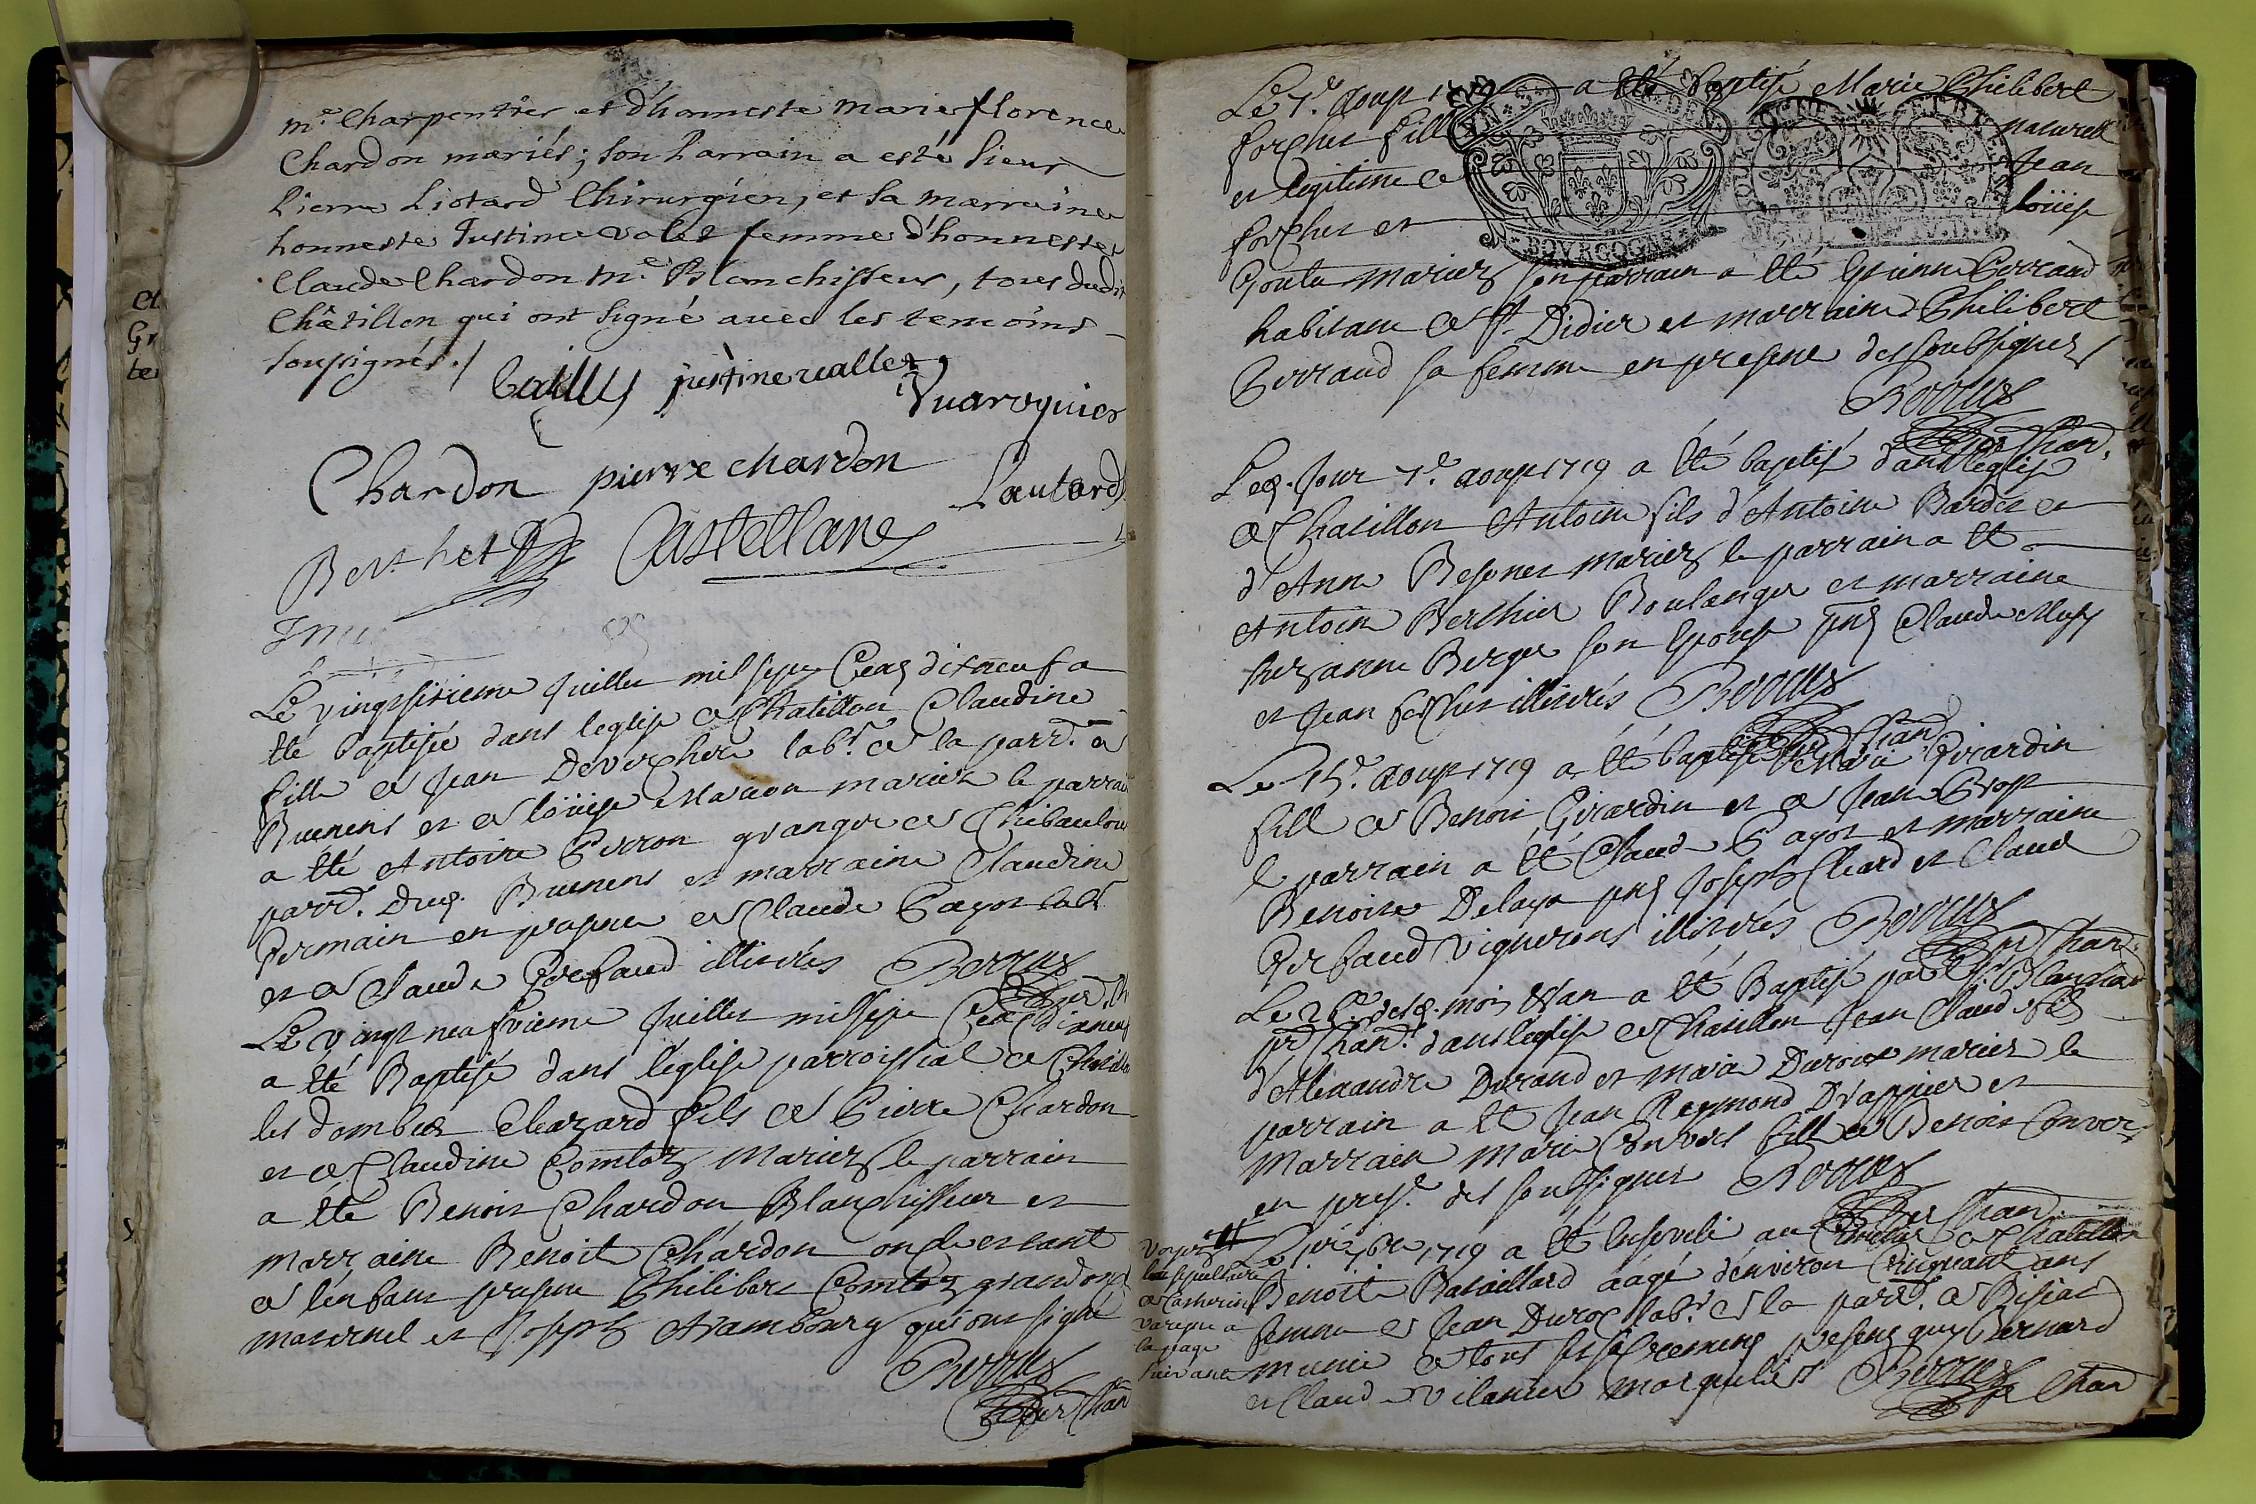 me. Charpentier et d'honneste Marie florence
Chardon mariés; son Parrain a esté Sieur
Pierre Liotard Chirurgien, et sa marreine
honneste Justine valet femme d'honneste
Claude Chardon me. Blanchisseur, tous dudit
Châtillon qui ont signé avec les temoins
soussignés./
justine vallet
Vuaroquier
Chardon pierre chardon Lautard
Berthet Castellane
Le vingtsixieme juillet mil sept Cens dixneuf a
été baptisée dans leglise de Chatillon Claudine
fille de Jean Devercher labr. de la parr. de
Buenens et de loüise Marion mariez le parrain
a été Antoine Perron granger de
parr. dud. Buenens et marraine Claudine
Permain en presence de Claude Pagot labr
et de Claude Grefaud illitérés Perrus
Le vingt neufvieme juillet mil sept Cens dixneuf
a été Baptisé dans léglise parroissial de Chatillon
les dombes Eleazard fils de Pierre Chardon
et de Claudine Comtoz Mariez le parrain
a été Benoit Chardon Blanchisseur et
marraine Benoite Chardon oncle et tante
de l'enfant presens Philibert Comtoz grandpere
maternel et Joseph Arambourg qui ont signé
Perrus
Le 7e. aoust a été baptisé Marie Philibert
forcher fille naturelle
et legitime de Jean
forcher et loüise
Goula mariez son parrain a été Etienne Perraud
habitant de St. Didier et marraine Philibert
Perraud sa femme en presence des soubsignez
Perrus
BOVRGOGNE
Led. jour 7e aoust 1719 a été baptisé dans leglise
de Chatillon Antoine fils d'Antoine Bardet et
d'Anne Besonet mariez le parrain a été
Antoine Berthier Boulanger et marraine
Suzanne Berger son Epouse pns Claude
et Jean forcher illitérés Perrus
Le 15e. aoust 1719 a été baptisée Maria Girardin
fille de Benoit Girardin et de Jeane Prost
le parrain a été Claude Pagot et marraine
Benoite Delaye pns Joseph Cleard et Claude
Grefaud vignerons illitérés Perrus
Le 26e. desd. mois et an a été Baptisé par
pr Chan. dans leglise de Chatillon Jean Claude fils
d'Alexandre Durand et Marie Duroux mariez le
parrain a été Jean Reymond Drappier et
Marraine Marie Convert fille de Benoit Convert
en presce. des soubsignes Perrus
Le 7bre 1719 a été Ensevelie au Cimetiere de Chatillon
Benoite Bataillard aagé d'environ Cinquante ans
femme de Jean Duroc labr. de la parr. de Bisiat
munie de tous ses sacremens presens guy Bernard
et Claude Perrus Chan
voyez
la sepulture
de Catherine
a
la page
suivante